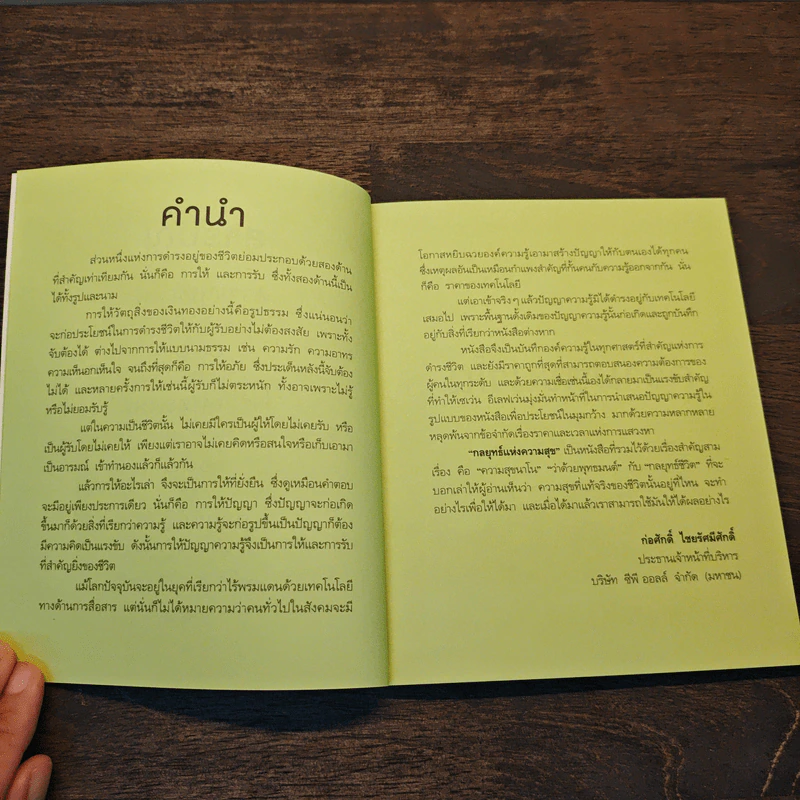 คำนำ
ส่วนหนึ่งแห่งการดำรงอยู่ของชีวิตย่อมประกอบด้วยสองด้าน
ที่สำคัญเท่าเทียมกัน นั่นก็คือ การให้ และการรับ ซึ่งทั้งสองด้านนี้เป็น
ได้ทั้งรูปและนาม
การให้วัตถุสิ่งของเงินทองอย่างนี้คือรูปธรรม ซึ่งแน่นอนว่า
จะก่อประโยชน์ในการดำรงชีวิตให้กับผู้รับอย่างไม่ต้องสงสัย เพราะทั้ง
จับต้องได้ ต่างไปจากการให้แบบนามธรรม เช่น ความรัก ความอาทร
ความเห็นอกเห็นใจ จนถึงที่สุดก็คือ การให้อภัย ซึ่งประเด็นหลังนี้จับต้อง
ไม่ได้ และหลายครั้งการให้เช่นนี้ผู้รับก็ไม่ตระหนัก ทั้งอาจเพราะไม่รู้
หรือไม่ยอมรับรู้
แต่ในความเป็นชีวิตนั้น ไม่เคยมีใครเป็นผู้ให้โดยไม่เคยรับ หรือ
เป็นผู้รับโดยไม่เคยให้ เพียงแต่เราอาจไม่เคยคิดหรือสนใจหรือเก็บเอามา
เป็นอารมณ์ เข้าทำนองแล้วก็แล้วกัน
แล้วการให้อะไรเล่า จึงจะเป็นการให้ที่ยั่งยืน ซึ่งดูเหมือนคำตอบ
จะมีอยู่เพียงประการเดียว นั่นก็คือ การให้ปัญญา ซึ่งปัญญาจะก่อเกิด
ขึ้นมาก็ด้วยสิ่งที่เรียกว่าความรู้ และความรู้จะก่อรูปขึ้นเป็นปัญญาก็ต้อง
มีความคิดเป็นแรงขับ ดังนั้นการให้ปัญญาความรู้จึงเป็นการให้และการรับ
ที่สำคัญยิ่งของชีวิต
แม้โลกปัจจุบันจะอยู่ในยุคที่เรียกว่าไร้พรมแดนด้วยเทคโนโลยี
ทางด้านการสื่อสาร แต่นั่นก็ไม่ได้หมายความว่าคนทั่วไปในสังคมจะมี
โอกาสหยิบฉวยองค์ความรู้เอามาสร้างปัญญาให้กับตนเองได้ทุกคน
ซึ่งเหตุผลอันเป็นเหมือนกำแพงสำคัญที่กั้นคนกับความรู้ออกจากกัน นั่น
ก็คือ ราคาของเทคโนโลยี
แต่เอาเข้าจริงๆ แล้วปัญญาความรู้มิได้ดำรงอยู่กับเทคโนโลยี
เสมอไป เพราะพื้นฐานดั้งเดิมของปัญญาความรู้นั้นก่อเกิดและถูกบันทึก
อยู่กับสิ่งที่เรียกว่าหนังสือต่างหาก
หนังสือจึงเป็นบันทึกองค์ความรู้ในทุกศาสตร์ที่สำคัญแห่งการ
ดำรงชีวิต และยังมีราคาถูกที่สุดที่สามารถตอบสนองความต้องการของ
ผู้คนในทุกระดับ และด้วยความเชื่อเช่นนี้เองได้กลายมาเป็นแรงขับสำคัญ
ที่ทำให้เซเว่น อีเลฟเว่นมุ่งมั่นทำหน้าที่ในการนำเสนอปัญญาความรู้ใน
รูปแบบของหนังสือเพื่อประโยชน์ในมุมกว้าง มากด้วยความหลากหลาย
หลุดพ้นจากข้อจำกัดเรื่องราคาและเวลาแห่งการแสวงหา
"กลยุทธ์แห่งความสุข" เป็นหนังสือที่รวมไว้ด้วยเรื่องสำคัญสาม
เรื่อง คือ "ความสุขนาโน" "ว่าด้วยพุทธมนต์" กับ "กลยุทธ์ชีวิต" ที่จะ
บอกเล่าให้ผู้อ่านเห็นว่า ความสุขที่แท้จริงของชีวิตนั้นอยู่ที่ไหน จะทำ
อย่างไรเพื่อให้ได้มา และเมื่อได้มาแล้วเราสามารถใช้มันให้ได้ผลอย่างไร
ก่อศักดิ์ ไชยรัศมีศักดิ์
ประธานเจ้าหน้าที่บริหาร
บริษัท ซีพี ออลล์ จำกัด (มหาชน)